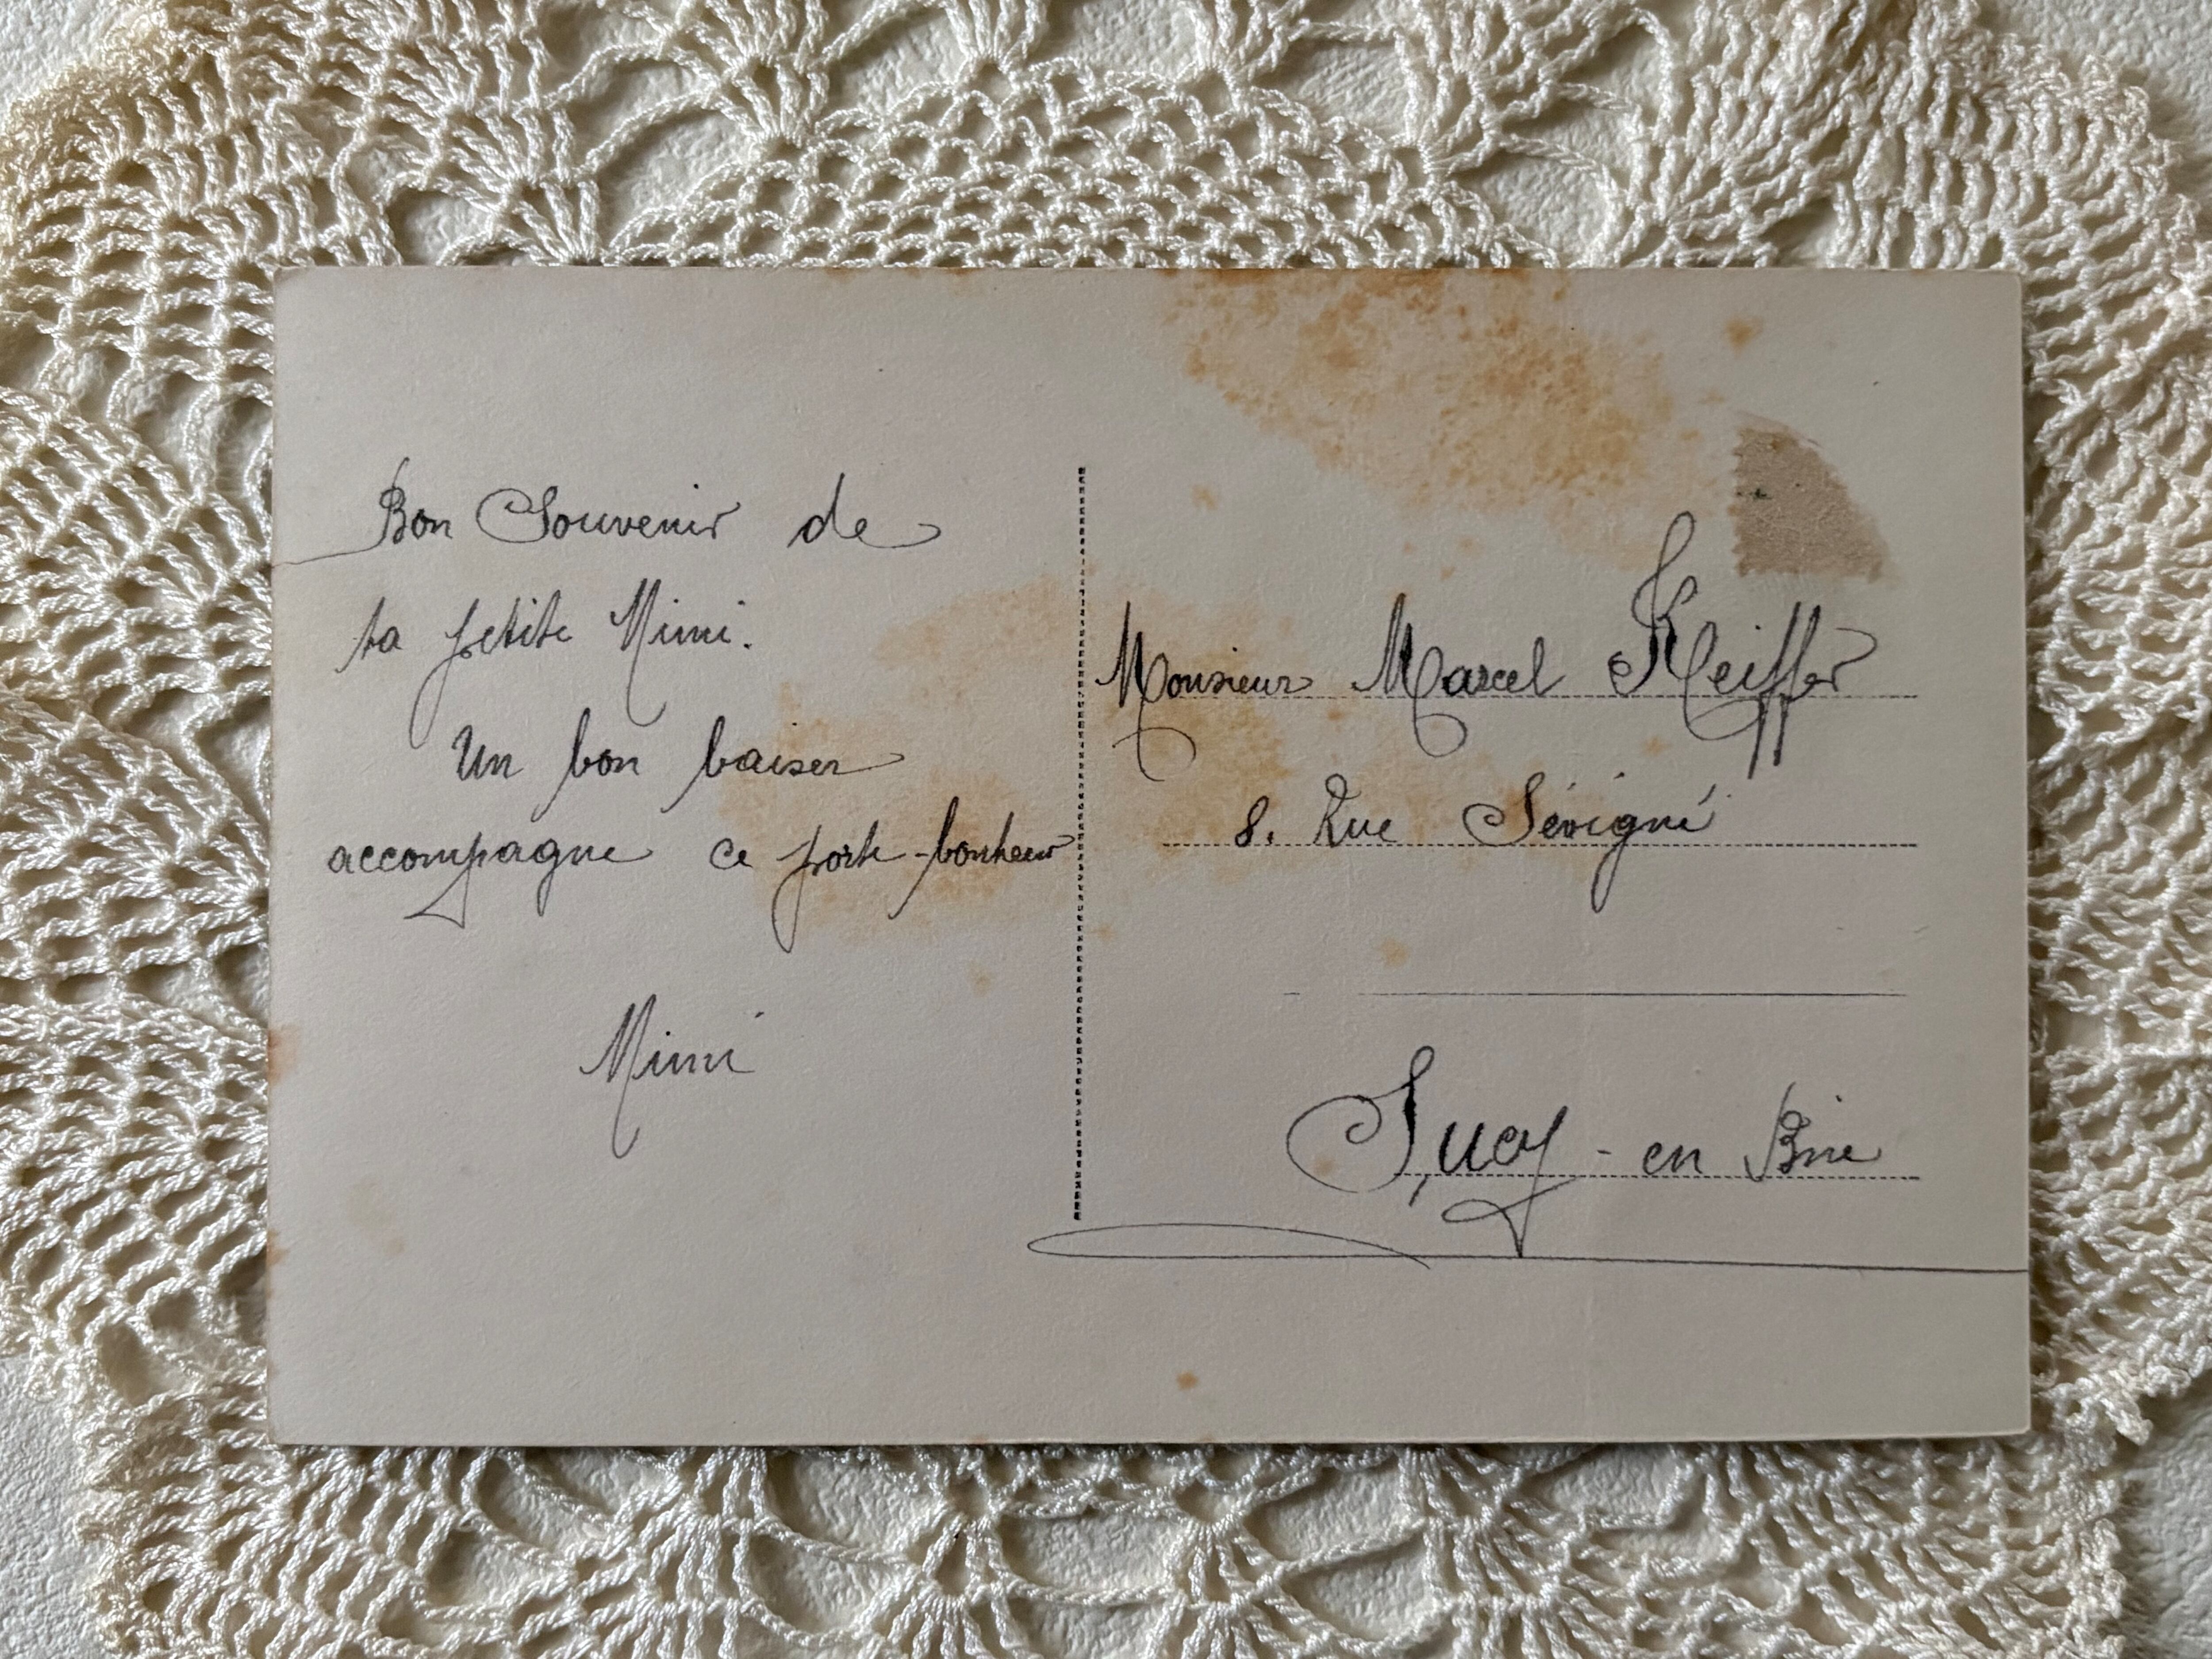 Bon Souvenir de
ta petite Mimi.
Un bon baiser
accompagne ce porte-bonheur
Mimi
Monsieur Marcel Keiffer
8. Rue Sévigné
Sucy-en Brie